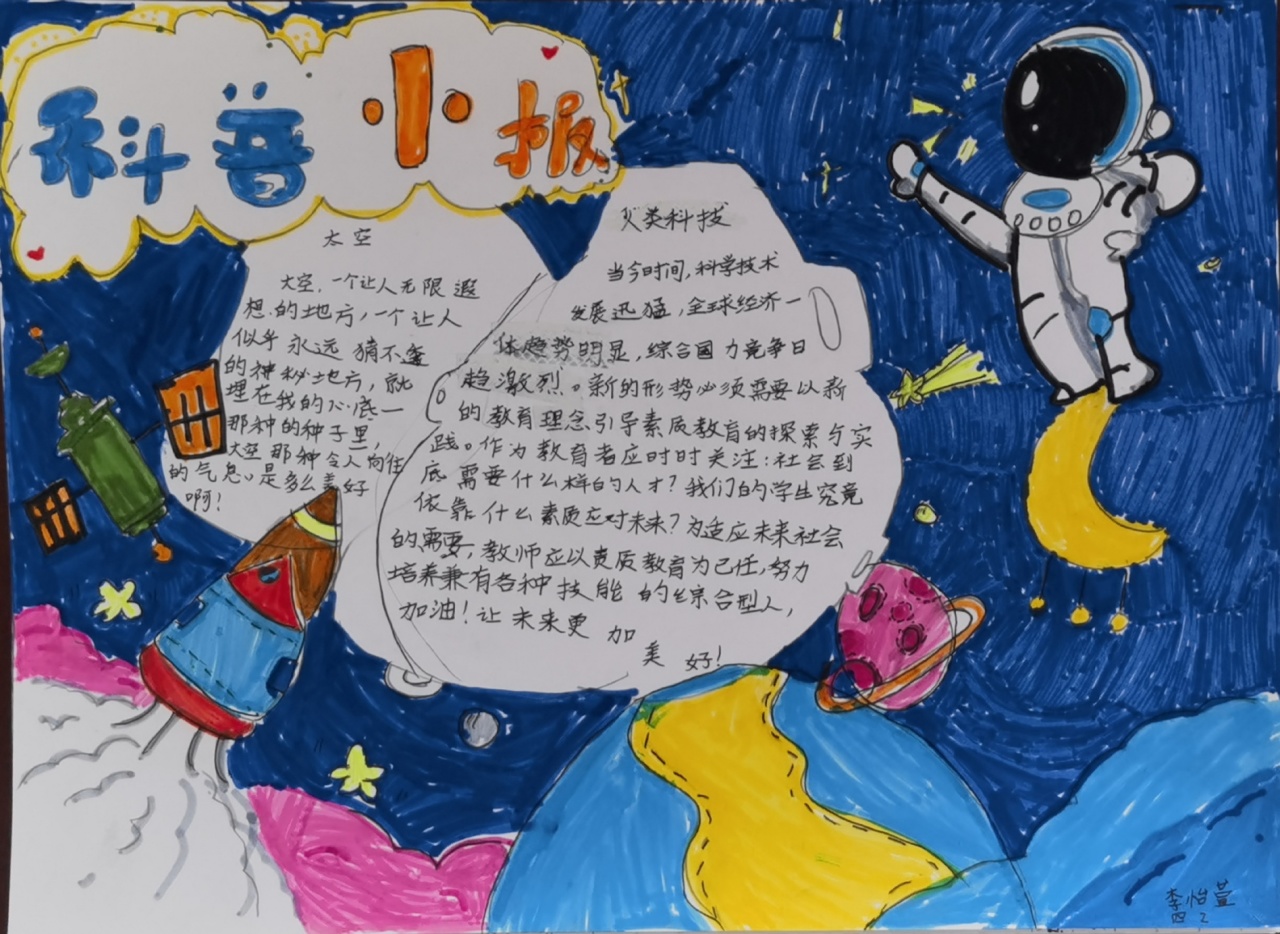 科普小报
太空
太空，一个让人无限遐
想的地方，一个让人
似乎永远猜不透
的神秘地方，就
埋在我的心底一
那种的种子里，
太空那种令人向往
的气息。是多么美好
啊！
人类科技
当今时间，科学技术
发展迅猛，全球经济一
体趋势明显，综合国力竞争日
趋激烈。新的形势必须需要以新
的教育理念引导素质教育的探索与实
践。作为教育者应时时关注：社会到
底需要什么样的人才？我们的学生究竟
依靠什么素质应对未来？为适应未来社会
的需要，教师应以素质教育为己任，努力
培养兼有各种技能的综合型人，
加油！让未来更加
美好！
李怡萱
四2